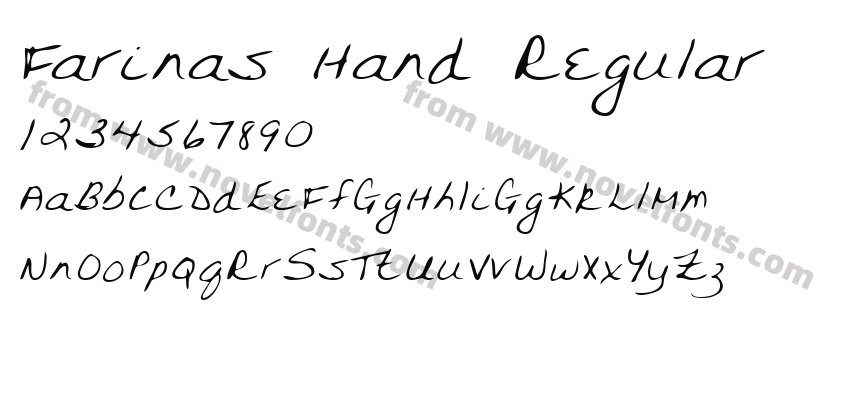 Farinas Hand Regular
1234567890
AaBbCcDdEeFfGgHhIiGgKRLlMm
NnOoPpQqRrSsTtUuVvWwXxYyZz
from www.novelfonts.com
from www.novelfonts.com